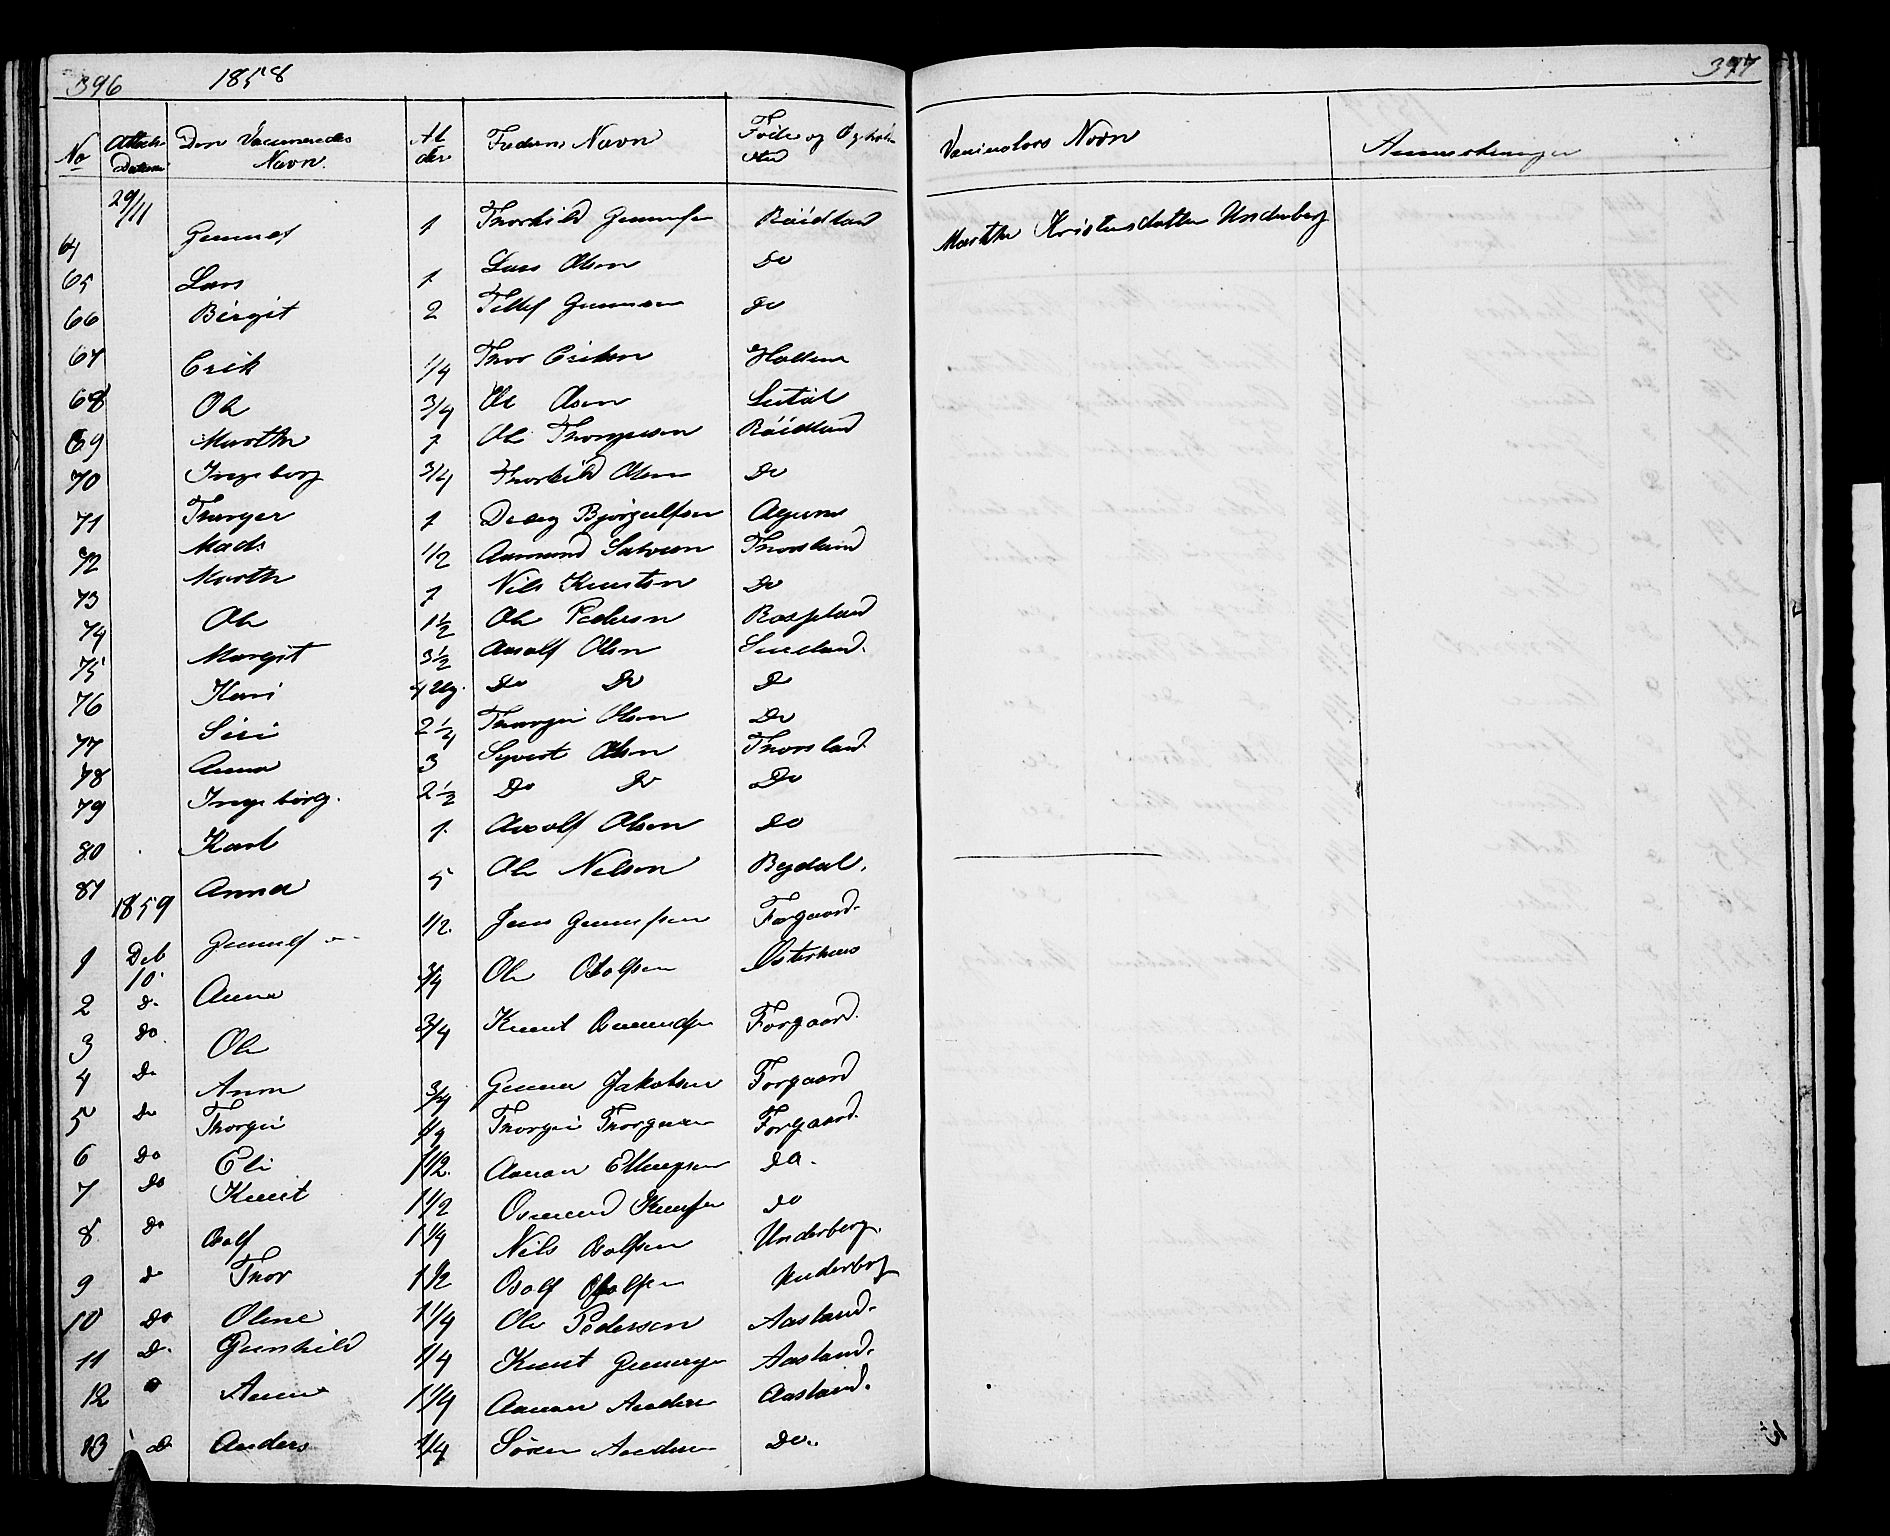 396 1858
No Attest. Datum Den Vaccineredes Navn. Alder Faderens Navn Føde og Opholdssted
29/11
64 Gunnuf 1 Thorkild Gunnufsen Röidland
65 Lars 1 Lars Olsen Do
66 Birgit 2 Tellef Gunnarsen Do
67 Erik 1/4 Thor Eriksen
68 Ole 3/4 Ole Olsen
69 Marthe 1 Ole Thorgersen Röidland
70 Ingeborg 3/4 Thorkild Olsen Do
71 Thorger 1 Dreng Bjørgulfsen
72 Mads 1/2 Aamund Salvesen Thorsland
73 Marthe 1 Nils Knutsen Do
74 Ole 1 1/2 Ole Pedersen Rosseland
75 Margit 3 1/2 Aasolf Olsen
76 Kari 4 Ug. Do Do Do
77 Siri 2 1/4 Thorgei Olsen Do
78 Anna 3 Syvert Olsen Thorsland
79 Ingeborg. 2 1/2 Do Do Do
80 Karl 1. Aasolf Olsen Do
81 Anna 5 Ole Nelson Bydal.
1859
1 Deb 10. Gunnuf 1/2. Jens Gunnufsen Forgaard.
2 Do Anne 3/4 Ole Osolfsen Østerhuus
3 Do Ole 3/4 Knut Osmundsen Forgaard.
4 Do Anon 3/4 Gunner Jakobsen Forgaard
5 Do Thorgei 1/4 Thorgei Thorgersen Forgaard.
6 Do Eli 1 1/2. Aanon Ellingsen Do.
7 Do Knut 1 1/2 Osmund Knutsen Do
8 Do Osolf 1 1/4 Nils Osolfsen Underberg.
9 Do Thor 1 1/2 Osolf Osolfsen Underberg
10 Do Oline 1 1/4 Ole Pedersen Aasland.
11 Do. Gunhild 1/4 Knut Aasland.
12 Do Anne 1 1/4 Aanon Anders Aasland.
13 Do Anders 1/4 Søren Andersen Do.
397
Vaccinators Navn Anmerkninger
Marthe Kristensdatter Underberg